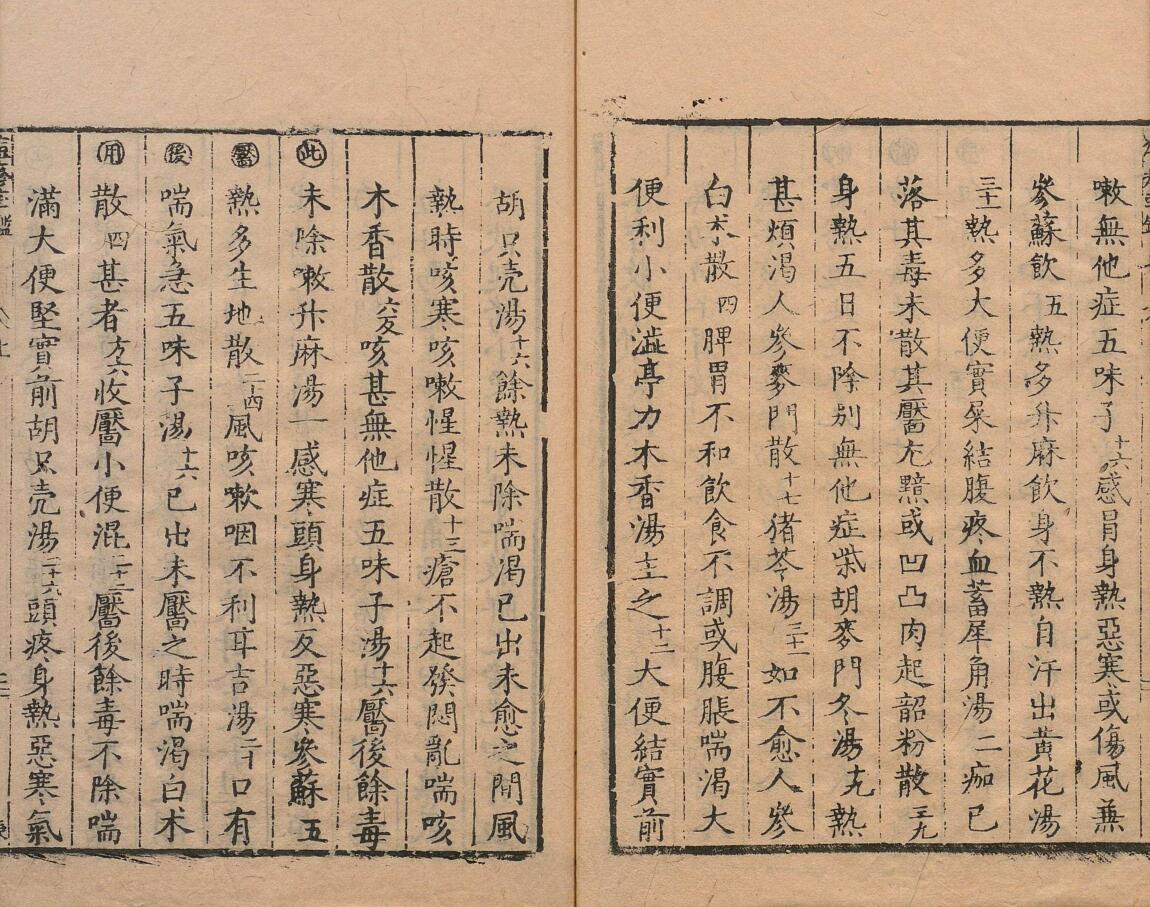 嗽無他症五味子十六感冒身熱惡寒或傷風兼
參蘇飲五熱多升麻飲身不熱自汗出黄花湯
三十一熱多大便實屎結腹疼血蓄犀角湯二痂已
落其毒未散其靨尤黯或凹凸肉起韶粉散三九
身熱五日不除別無他症柴胡麥門冬湯九熱
甚煩渴人參麥門散十七猪苓湯三十一如不愈人參
白朮散四脾胃不和飲食不調或腹脹喘渴大
便利小便澁亭力木香湯主之十二大便結實前
胡只壳湯十六餘熱未除喘渴已出未愈之間風
熱時咳寒咳嗽惺惺散十三瘡不起發悶亂喘咳
木香散六又咳甚無他症五味子湯十六靨後餘毒
此未除嗽升麻湯一感寒頭身熱反惡寒參蘇五
靨熱多生地散二十四風咳嗽咽不利耳吉湯二十口有
後喘氣急五味子湯十六已出未靨之時喘渴白术
用散四甚者方六收靨小便混二十二靨後餘毒不除喘
滿大便堅實前胡只壳湯二十六頭疼身熱惡寒氣